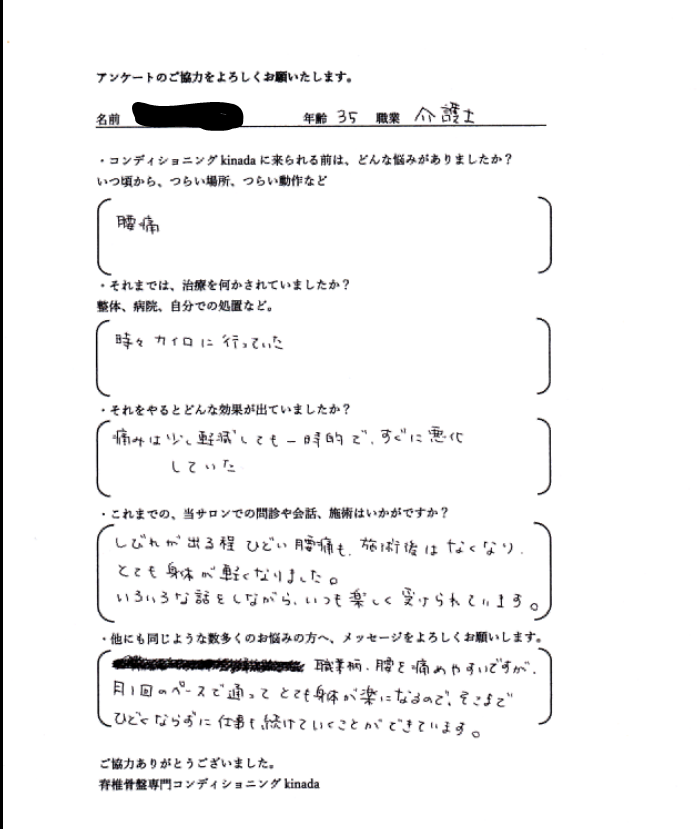 アンケートのご協力をよろしくお願いたします。
名前 年齢 35 職業 介護士
・コンディショニング kinada に来られる前は、どんな悩みがありましたか？
いつ頃から、つらい場所、つらい動作など
腰痛
・それまでは、治療を何かされていましたか？
整体、病院、自分での処置など。
時々カイロに行っていた
・それをやるとどんな効果が出ていましたか？
痛みは少し軽減しても一時的で、すぐに悪化
していた
・これまでの、当サロンでの問診や会話、施術はいかがですか？
しびれが出る程ひどい腰痛も、施術後はなくなり、
とても身体が軽くなりました。
いろいろな話をしながら、いつも楽しく受けられています。
・他にも同じような数多くのお悩みの方へ、メッセージをよろしくお願いします。
職業柄、腰を痛めやすいですが、
月1回のペースで通ってとても身体が楽になるので、そこまで
ひどくならずに仕事も続けていくことができています。
ご協力ありがとうございました。
脊椎骨盤専門コンディショニング kinada